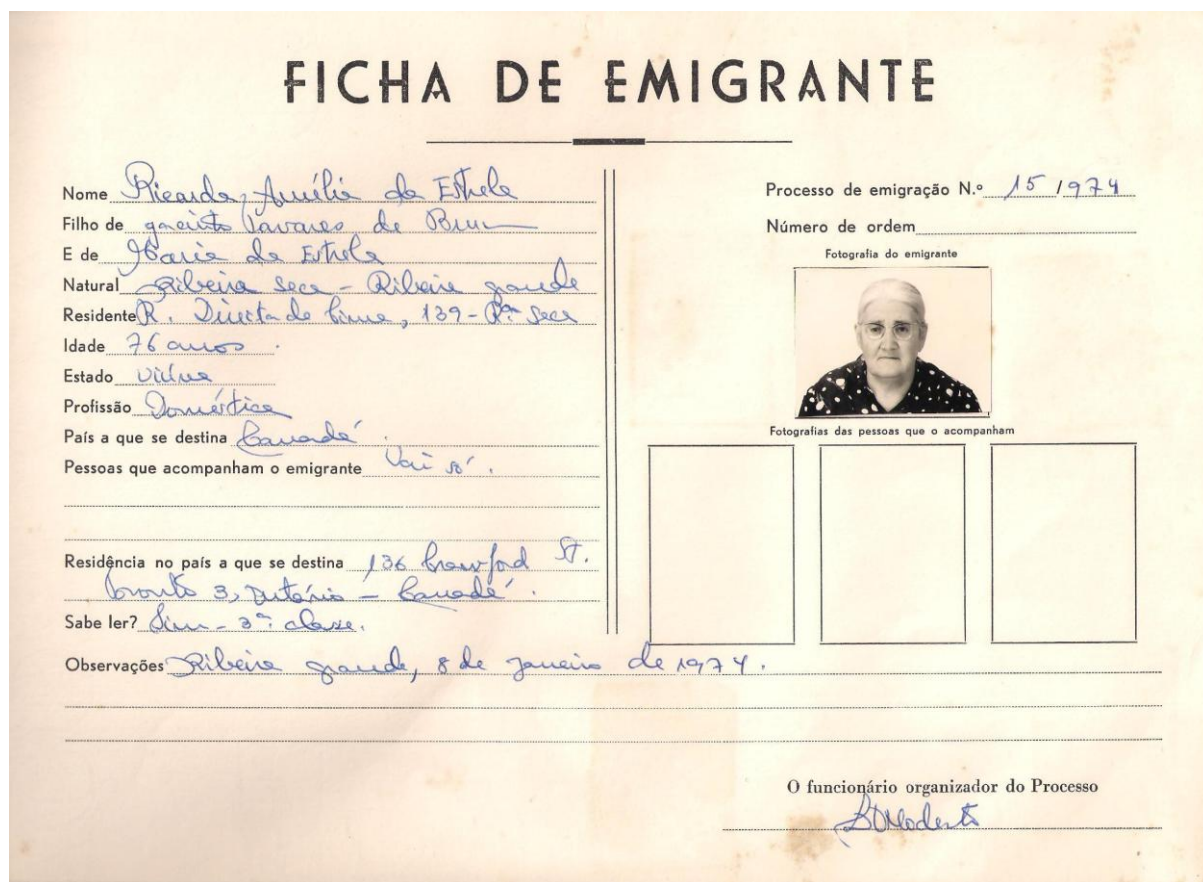 FICHA DE EMIGRANTE
Nome Ricarda Amélia da Estrela
Filho de Jacinto Tavares de Brum
E de Maria da Estrela
Natural Ribeira Seca - Ribeira Grande
Residente R. Direita de Cima, 139 - Rª Seca
Idade 76 anos.
Estado Viúva
Profissão Doméstica
País a que se destina Canadá.
Pessoas que acompanham o emigrante Vai só.
Residência no país a que se destina 136 Crawford St.
Toronto 3, Ontário - Canadá.
Sabe ler? Sim - 3ª classe.
Processo de emigração N.º 15/974
Número de ordem
Fotografia do emigrante
Fotografias das pessoas que o acompanham
Observações Ribeira Grande, 8 de Janeiro de 1974.
O funcionário organizador do Processo